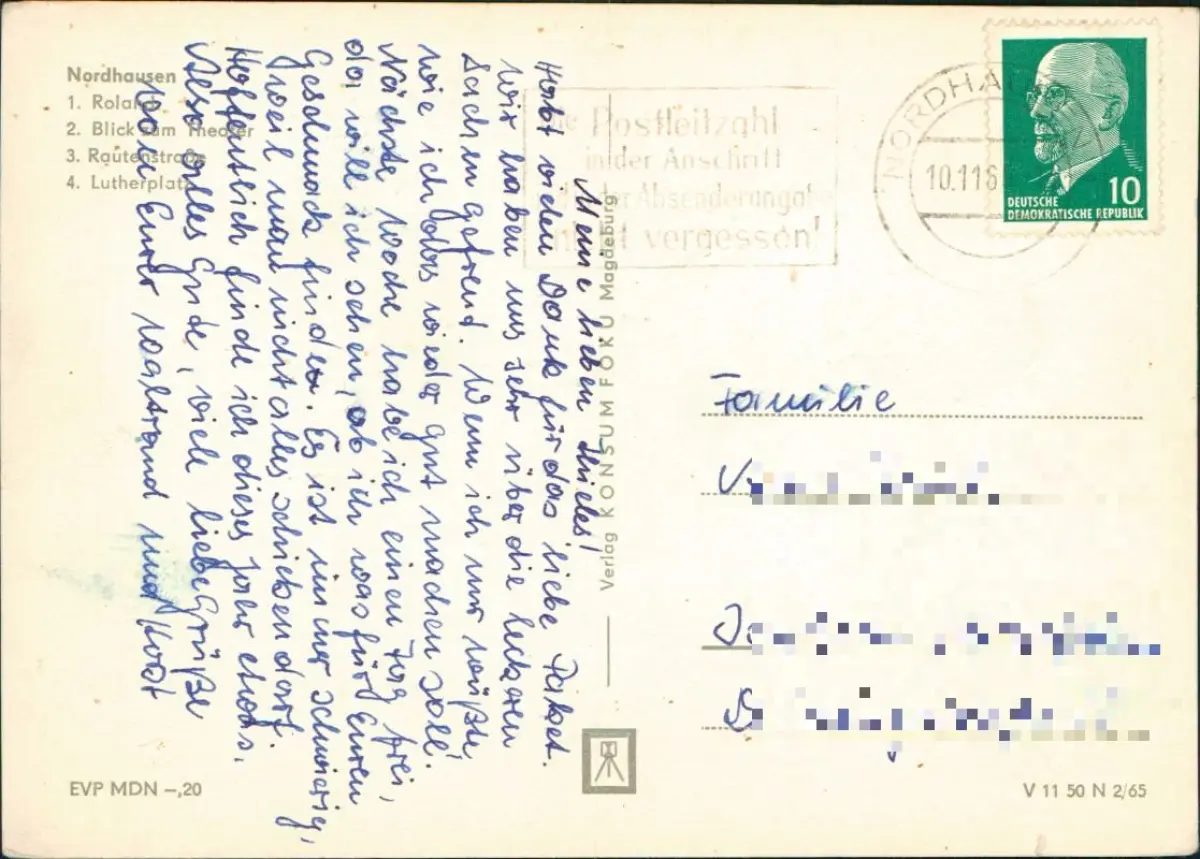 Nordhausen
1. Roland
2. Blick zum Theater
3. Rautenstraße
4. Lutherplatz
Meine lieben
Habt vielen Dank für das liebe Paket.
Wir haben uns sehr über die leckeren
Sachen gefreut. Wenn ich nur wüßte
wie ich das wieder gut machen soll.
Nächste Woche habe ich einen Tag frei,
da will ich sehen, ob ich was für Euren
Geschmack finde. Es ist immer schwierig,
weil man nicht alles schicken darf.
Hoffentlich finde ich dieses Jahr etwas.
Also alles Gute, viele liebe Grüße
von Eurer Waltraud und Horst
Verlag KONSUM FOKU Magdeburg
Die Postleitzahl
in der Anschrift
und der Absenderangabe
nicht vergessen!
NORDHA
10.11.6
DEUTSCHE
DEMOKRATISCHE REPUBLIK
10
Familie
V
D
EVP MDN –,20
V 11 50 N 2/65